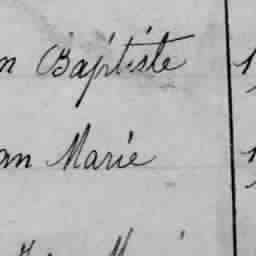 n Baptiste
an Marie